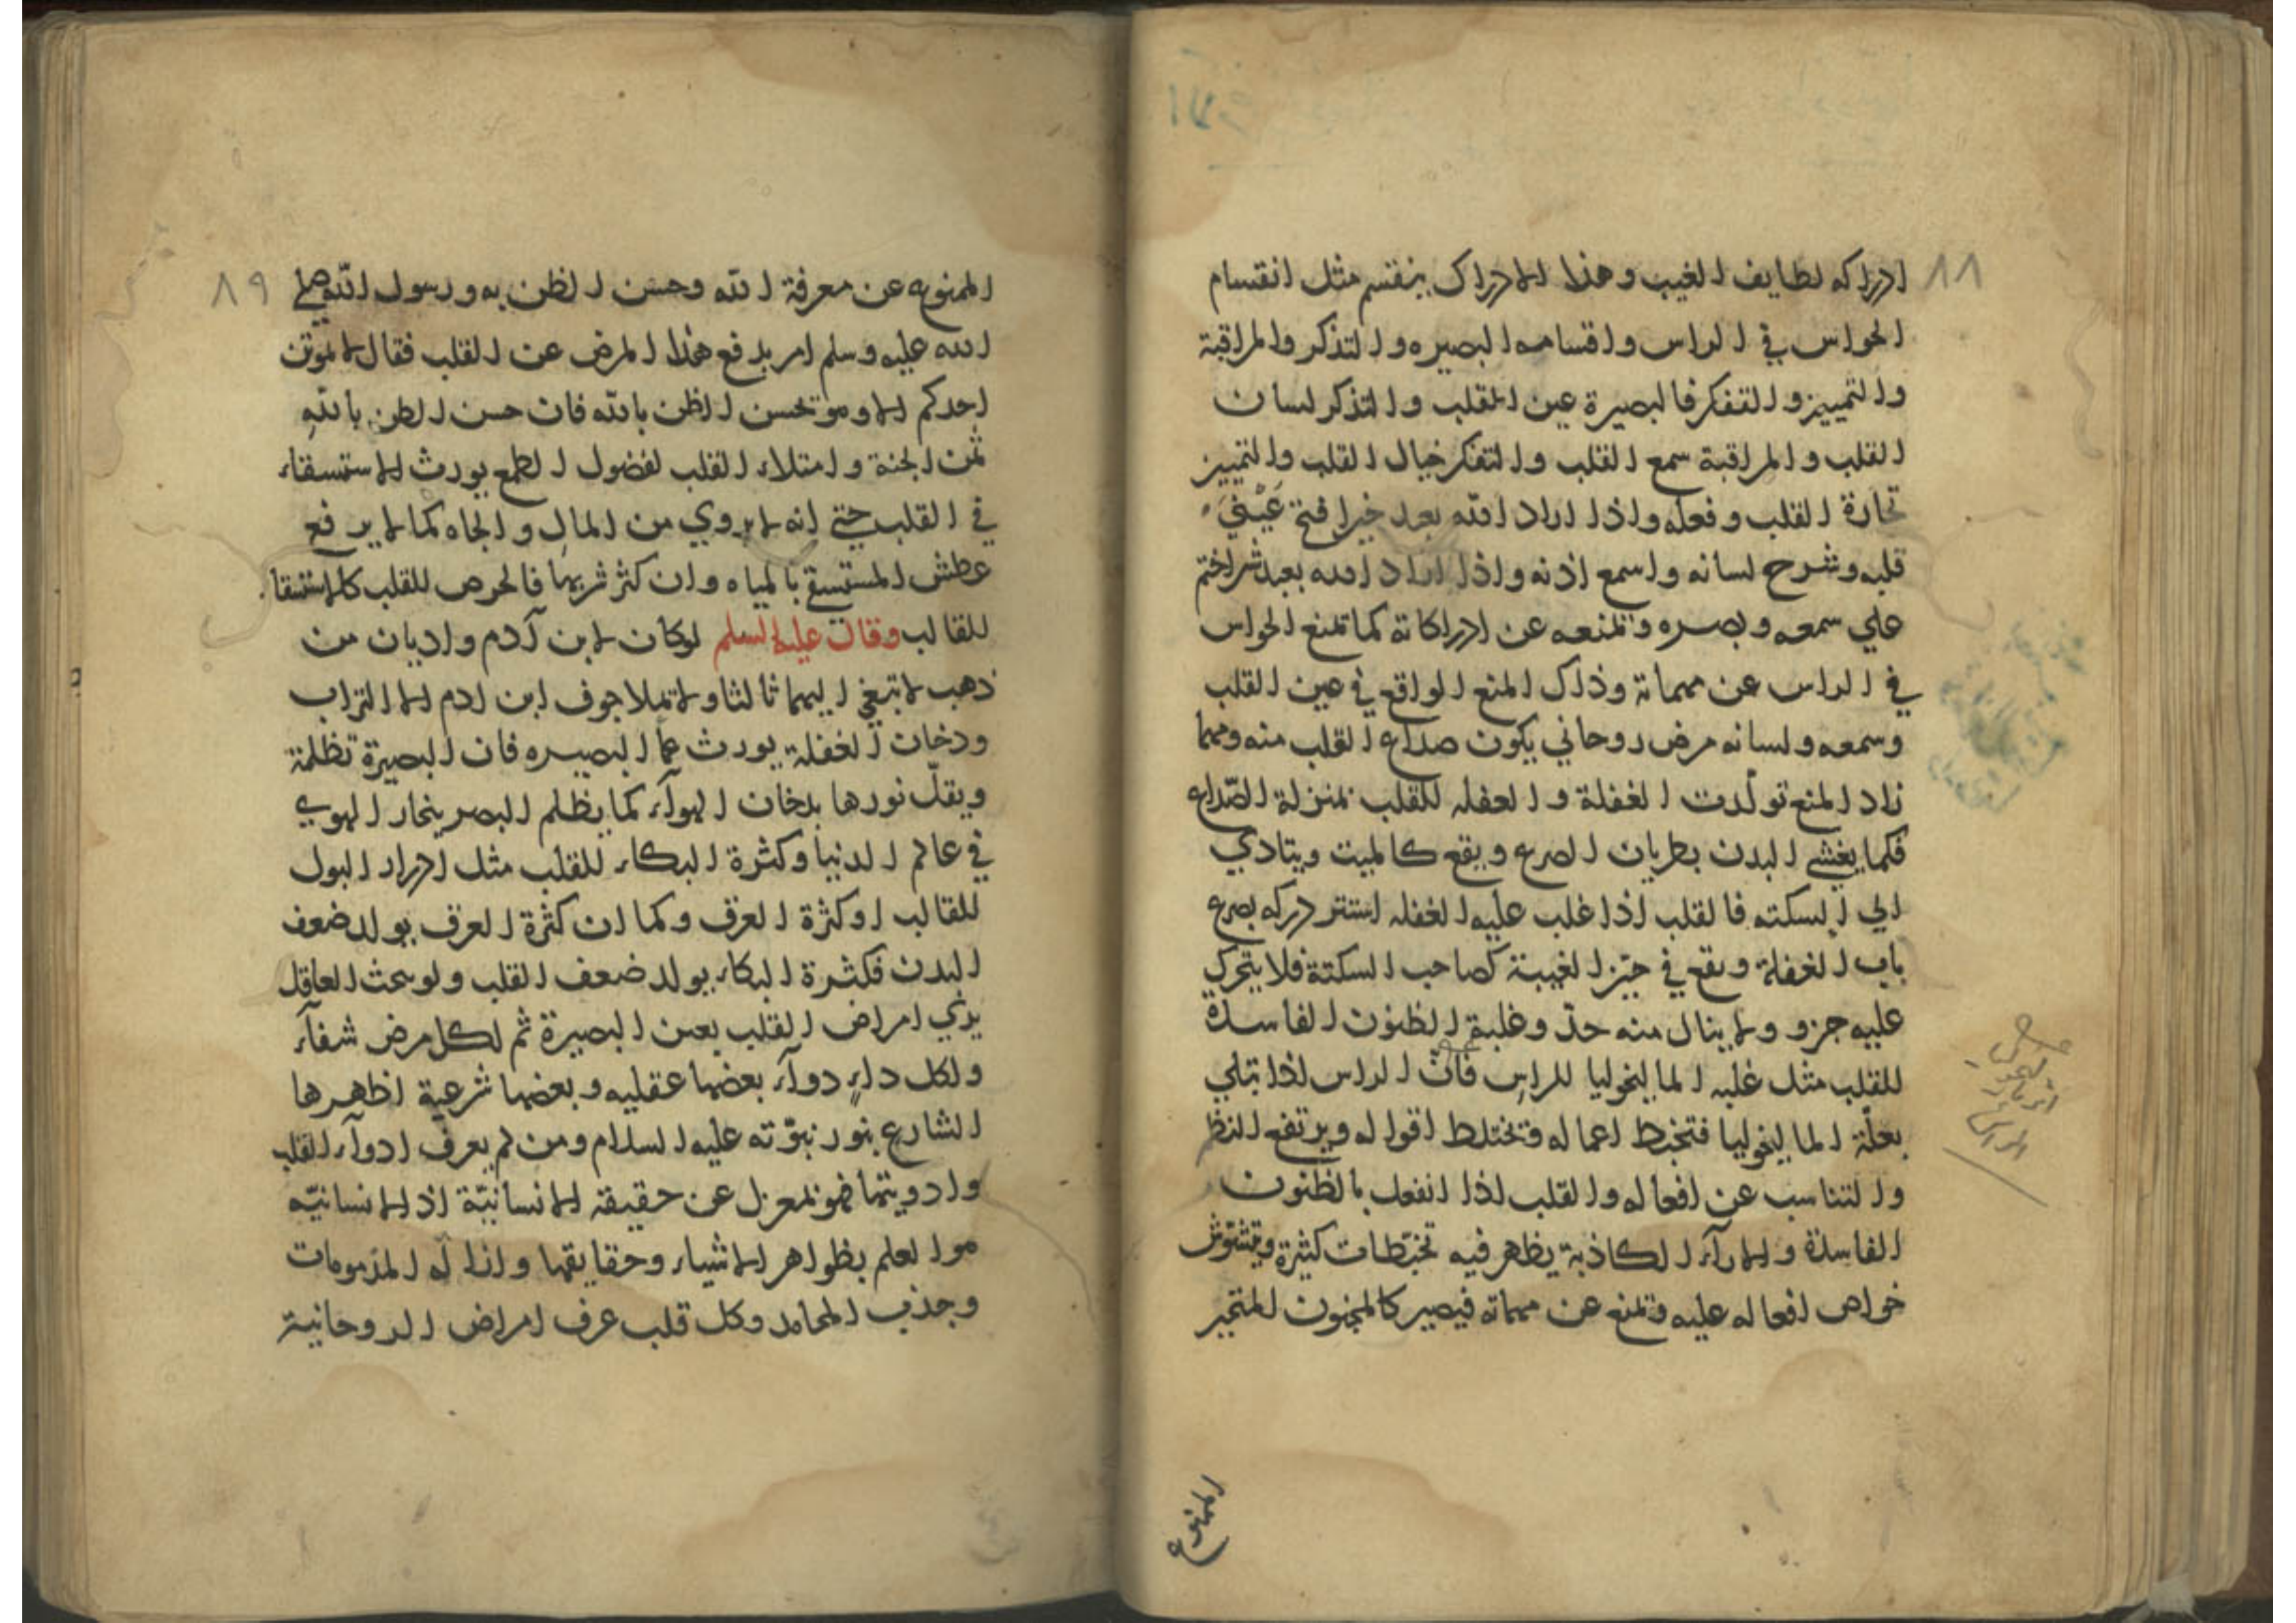 ٨٨
ادراكه لطايف الغيب وهذا الادراك ينقسم مثل انقسام
الحواس في الراس واقسامه البصيره والتذكر والمراقبة
والتمييز والتفكر فالبصيرة عين القلب والتذكر لسان
القلب والمراقبة سمع القلب والتفكر خيال القلب والتمييز
تجارة القلب وفعله واذا اراد الله بعبد خيرا فتح عيني
قلبه وشرح لسانه واسمع اذنه واذا اراد الله بعبد شرا ختم
علي سمعه وبصره وتمنعه عن ادراكاته كما تمنع الحواس
في الراس عن مهماته وذلك المنع الواقع في عين القلب
وسمعه ولسانه مرض روحاني يكون صداع القلب منه ومهما
زاد المنع تولدت الغفلة والغفله للقلب بمنزلة الصداع
فكما يغشي البدن بطريان الصرع ويقع كالميت ويتادي
الي السكته فالقلب اذا غلب عليه الغفله استتر دركه بصرع
باب الغفلة ويقع في حيز الغيبة كصاحب السكتة فلا يتحرك
عليه جزو ولا ينال منه حد وغلبة الظنون الفاسدة
للقلب مثل غلبه الماليخوليا للراس فان الراس اذا تبلي
بعلة الماليخوليا فتختبط اعماله وتختلط اقواله ويرتفع النظم
والتناسب عن افعاله والقلب اذا انفعل بالظنون
الفاسدة والارآء الكاذبة يظهر فيه تخبطات كثيرة ويتشوش
خواص افعاله عليه وتمنع عن مهماته فيصير كالمجنون المتحير
الممنوع
٨٩
الممنوع عن معرفة الله وحسن الظن به ورسول الله صلى
الله عليه وسلم امر بدفع هذا المرض عن القلب فقال لا يموتن
احدكم الا وهو يحسن الظن بالله فان حسن الظن بالله
ثمن الجنة وامتلاء القلب لفضول الطمع يورث الاستسقاء
في القلب حتي انه لا يروي من المال والجاه كما لا يرفع
عطش المستسقي بالمياه وان كثر شربها فالحرص للقلب كالاستسقاء
للقالب وقال عليه السلم لوكان لابن آدم واديان من
ذهب لا تبغي اليهما ثالثا ولا يملا جوف ابن ادم الا التراب
ودخان الغفلة يورث عما البصيره فان البصيرة تظلمة
ويقل نورها بدخان الهوآء كما يظلم البصر بنحار الهوي
في عالم الدنيا وكثرة البكاء للقلب مثل ادرار البول
للقالب او كثرة العرق وكما ان كثرة العرق يولد ضعف
البدن فكثرة البكاء يولد ضعف القلب ولو بحث العاقل
يري امراض القلب بعين البصيرة ثم لكل مرض شفآء
ولكل داء دوآء بعضها عقليه وبعضها شرعية اظهرها
الشارع بنور نبوته عليه السلام ومن لم يعرف ادوآء القلب
وادويتها فهو بمعزل عن حقيقة الانسانية اذ الانسانيه
هو العلم بظواهر الاشياء وحقايقها وازاله المذمومات
وجذب المحامد وكل قلب عرف امراض الروحانية